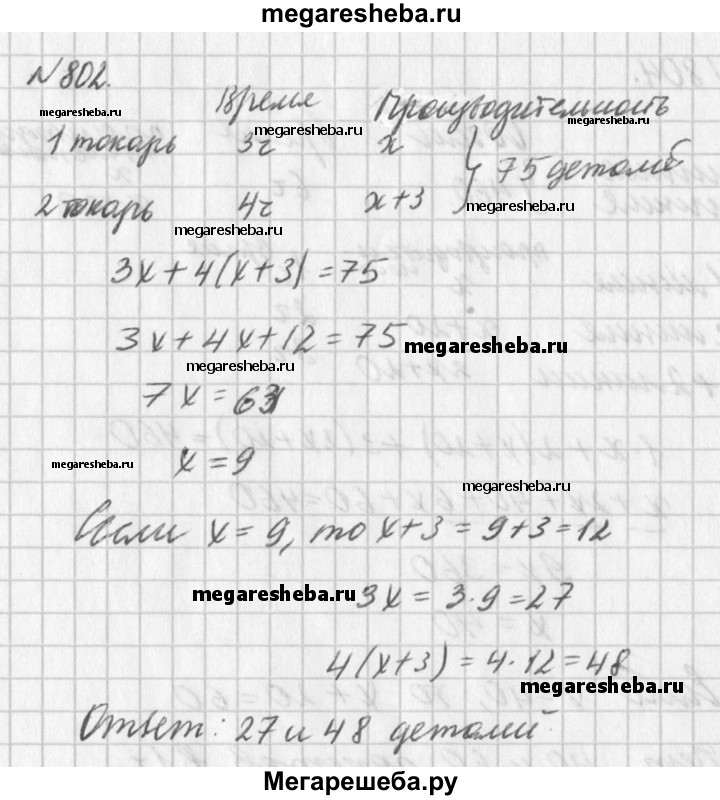 megaresheba.ru
N 802.
Время Производительность
megaresheba.ru megaresheba.ru megaresheba.ru
1 токарь 3ч x
75 деталей
2 токарь 4ч x+3 megaresheba.ru
megaresheba.ru
3x+4(x+3)=75
3x+4x+12=75 megaresheba.ru
megaresheba.ru
7x=63
megaresheba.ru x=9
megaresheba.ru
Если x=9, то x+3=9+3=12
megaresheba.ru 3x=3·9=27
4(x+3)=4·12=48
megaresheba.ru
Ответ: 27 и 48 деталей.
Мегарешеба.ру